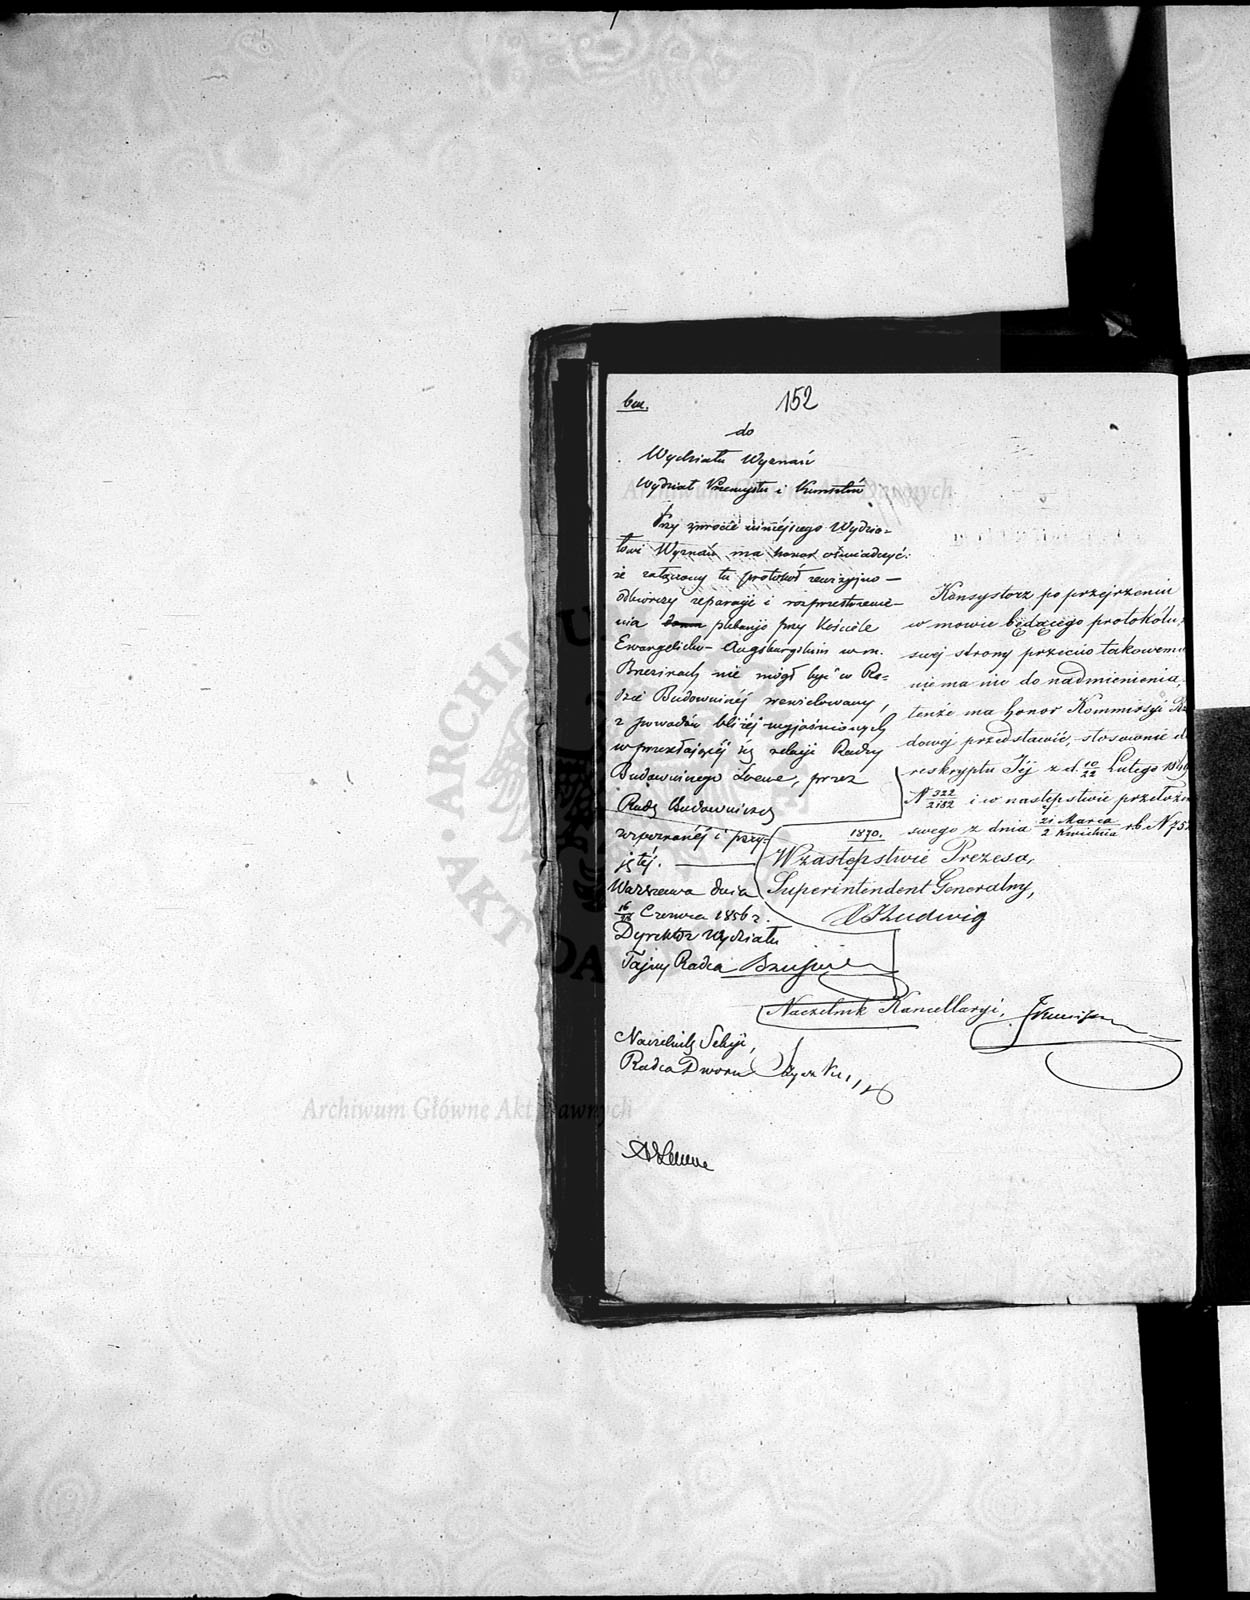 bm.
152
do
Wydziału Wyznań
Wydział Przemysłu i Kunsztów
Przy zwrocie niniejszego Wydzia-
łowi Wyznań ma honor oświadczyć:
że załączony tu protokół rewizyjno-
odbiorczy reparacji i rozprzestrzenie-
nia plebanji przy Kościele
Ewangelicko-Augsburgskim w m.
Brzezinach nie mógł być w Ra-
dzie Budowniczej
z powodów bliżej wyjaśnionych
w przekładającej się relacji Radcy
Budowniczego Loewe, przez
Radę Budowniczą
rozpoznanej i przy-
jętej.
Warszawa dnia
16/28 Czerwca 1856 r.
Dyrektor Wydziału
Tajny Radca
Naczelnik Sekcji,
Radca Dworu
Konsystorz po przejrzeniu
w mowie będącego protokółu,
swej strony przeciw takowemu
nie ma nic do nadmienienia,
tenże ma honor Kommissyi Rz
dowej przedstawić, stosownie d
reskryptu Jej z d. 10/22 Lutego
N 322/2152 i w następstwie przełoże
swego z dnia 21 Marca/2 Kwietnia r.b. N 752
1870.
W zastępstwie Prezesa,
Superintendent Generalny,
Ludwig
Naczelnik Kancellaryi,
Archiwum Główne Akt Dawnych
Archiwum Główne Akt Dawnych